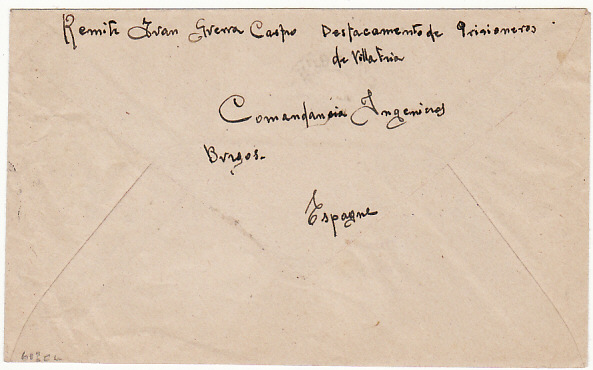 Remite Juan Guerra Castro Destacamento de Prisioneros
de Villafria
Comandancia Ingenieros
Burgos.
Espagne